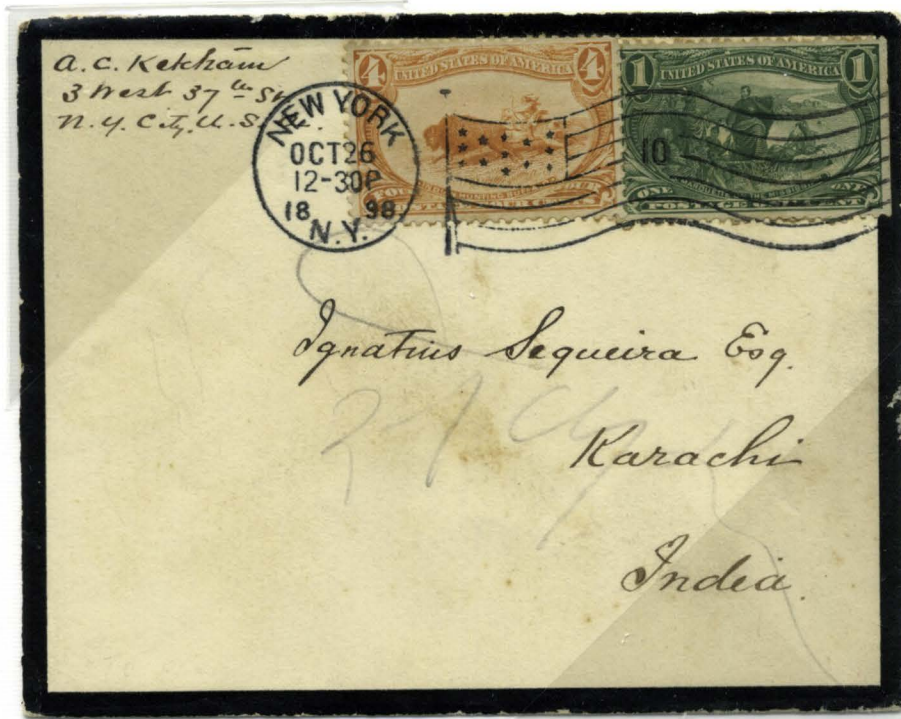 A. C. Ketcham
3 West 37th St.
N. Y. City, U. S.
NEW YORK
OCT 26
12-30P
18 98
N.Y.
4 UNITED STATES OF AMERICA 4
1 UNITED STATES OF AMERICA 1
10
ONE ONE
Ignatius Sequeira Esq.
Karachi
India.